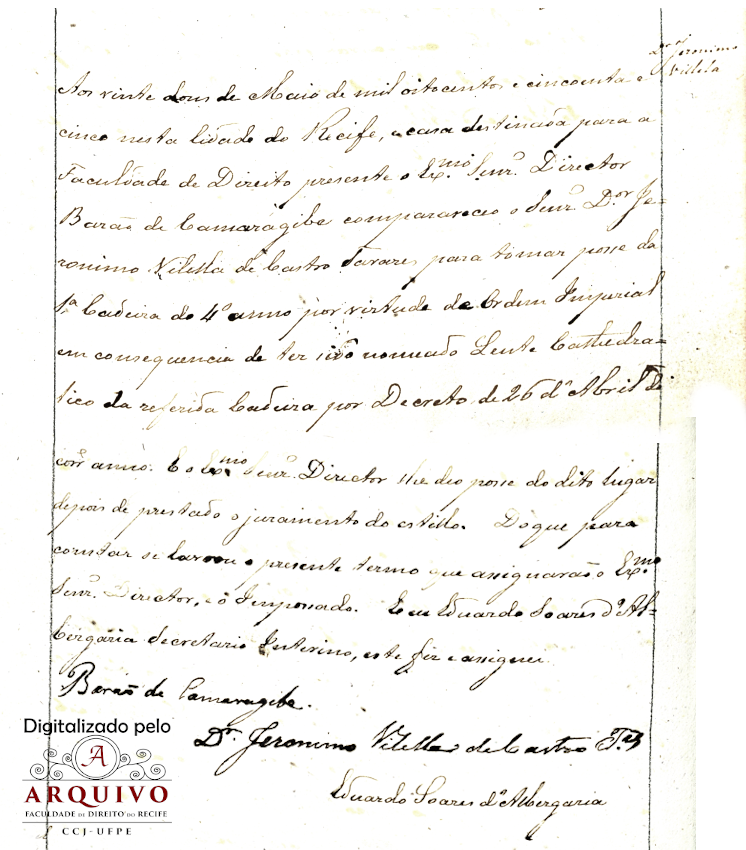 Dr. Jeronimo
Villela
Aos vinte dous de Maio de mil oitocentos e cincoenta e
cinco nesta Cidade do Recife, e casa destinada para a
Faculdade de Direito presente o Exmo. Senr. Director
Barão de Camaragibe compareceo o Senr. Dor. Je-
ronimo Vilella de Castro Tavares para tomar posse da
1a. Cadeira do 4o anno por virtude de Ordem Imperial
em consequencia de ter sido nomeado Lente Cathedra-
tico da referida Cadeira por Decreto de 26 d'Abril do
corre. anno. E o Exmo. Senr. Director lhe deo posse do dito lugar
depois de prestado o juramento do estillo. Do que para
constar se lavrou o presente termo que assignarão o Exmo.
Senr. Director, e o Impossado. E eu Eduardo Soares d'Al-
bergaria Secretario Interino, este fiz e assignei.
Barão de Camaragibe.
Dr. Jeronimo Vilella de Castro Tes
Eduardo Soares d'Albergaria
Digitalizado pelo
A
ARQUIVO
FACULDADE DE DIREITO DO RECIFE
CCJ-UFPE